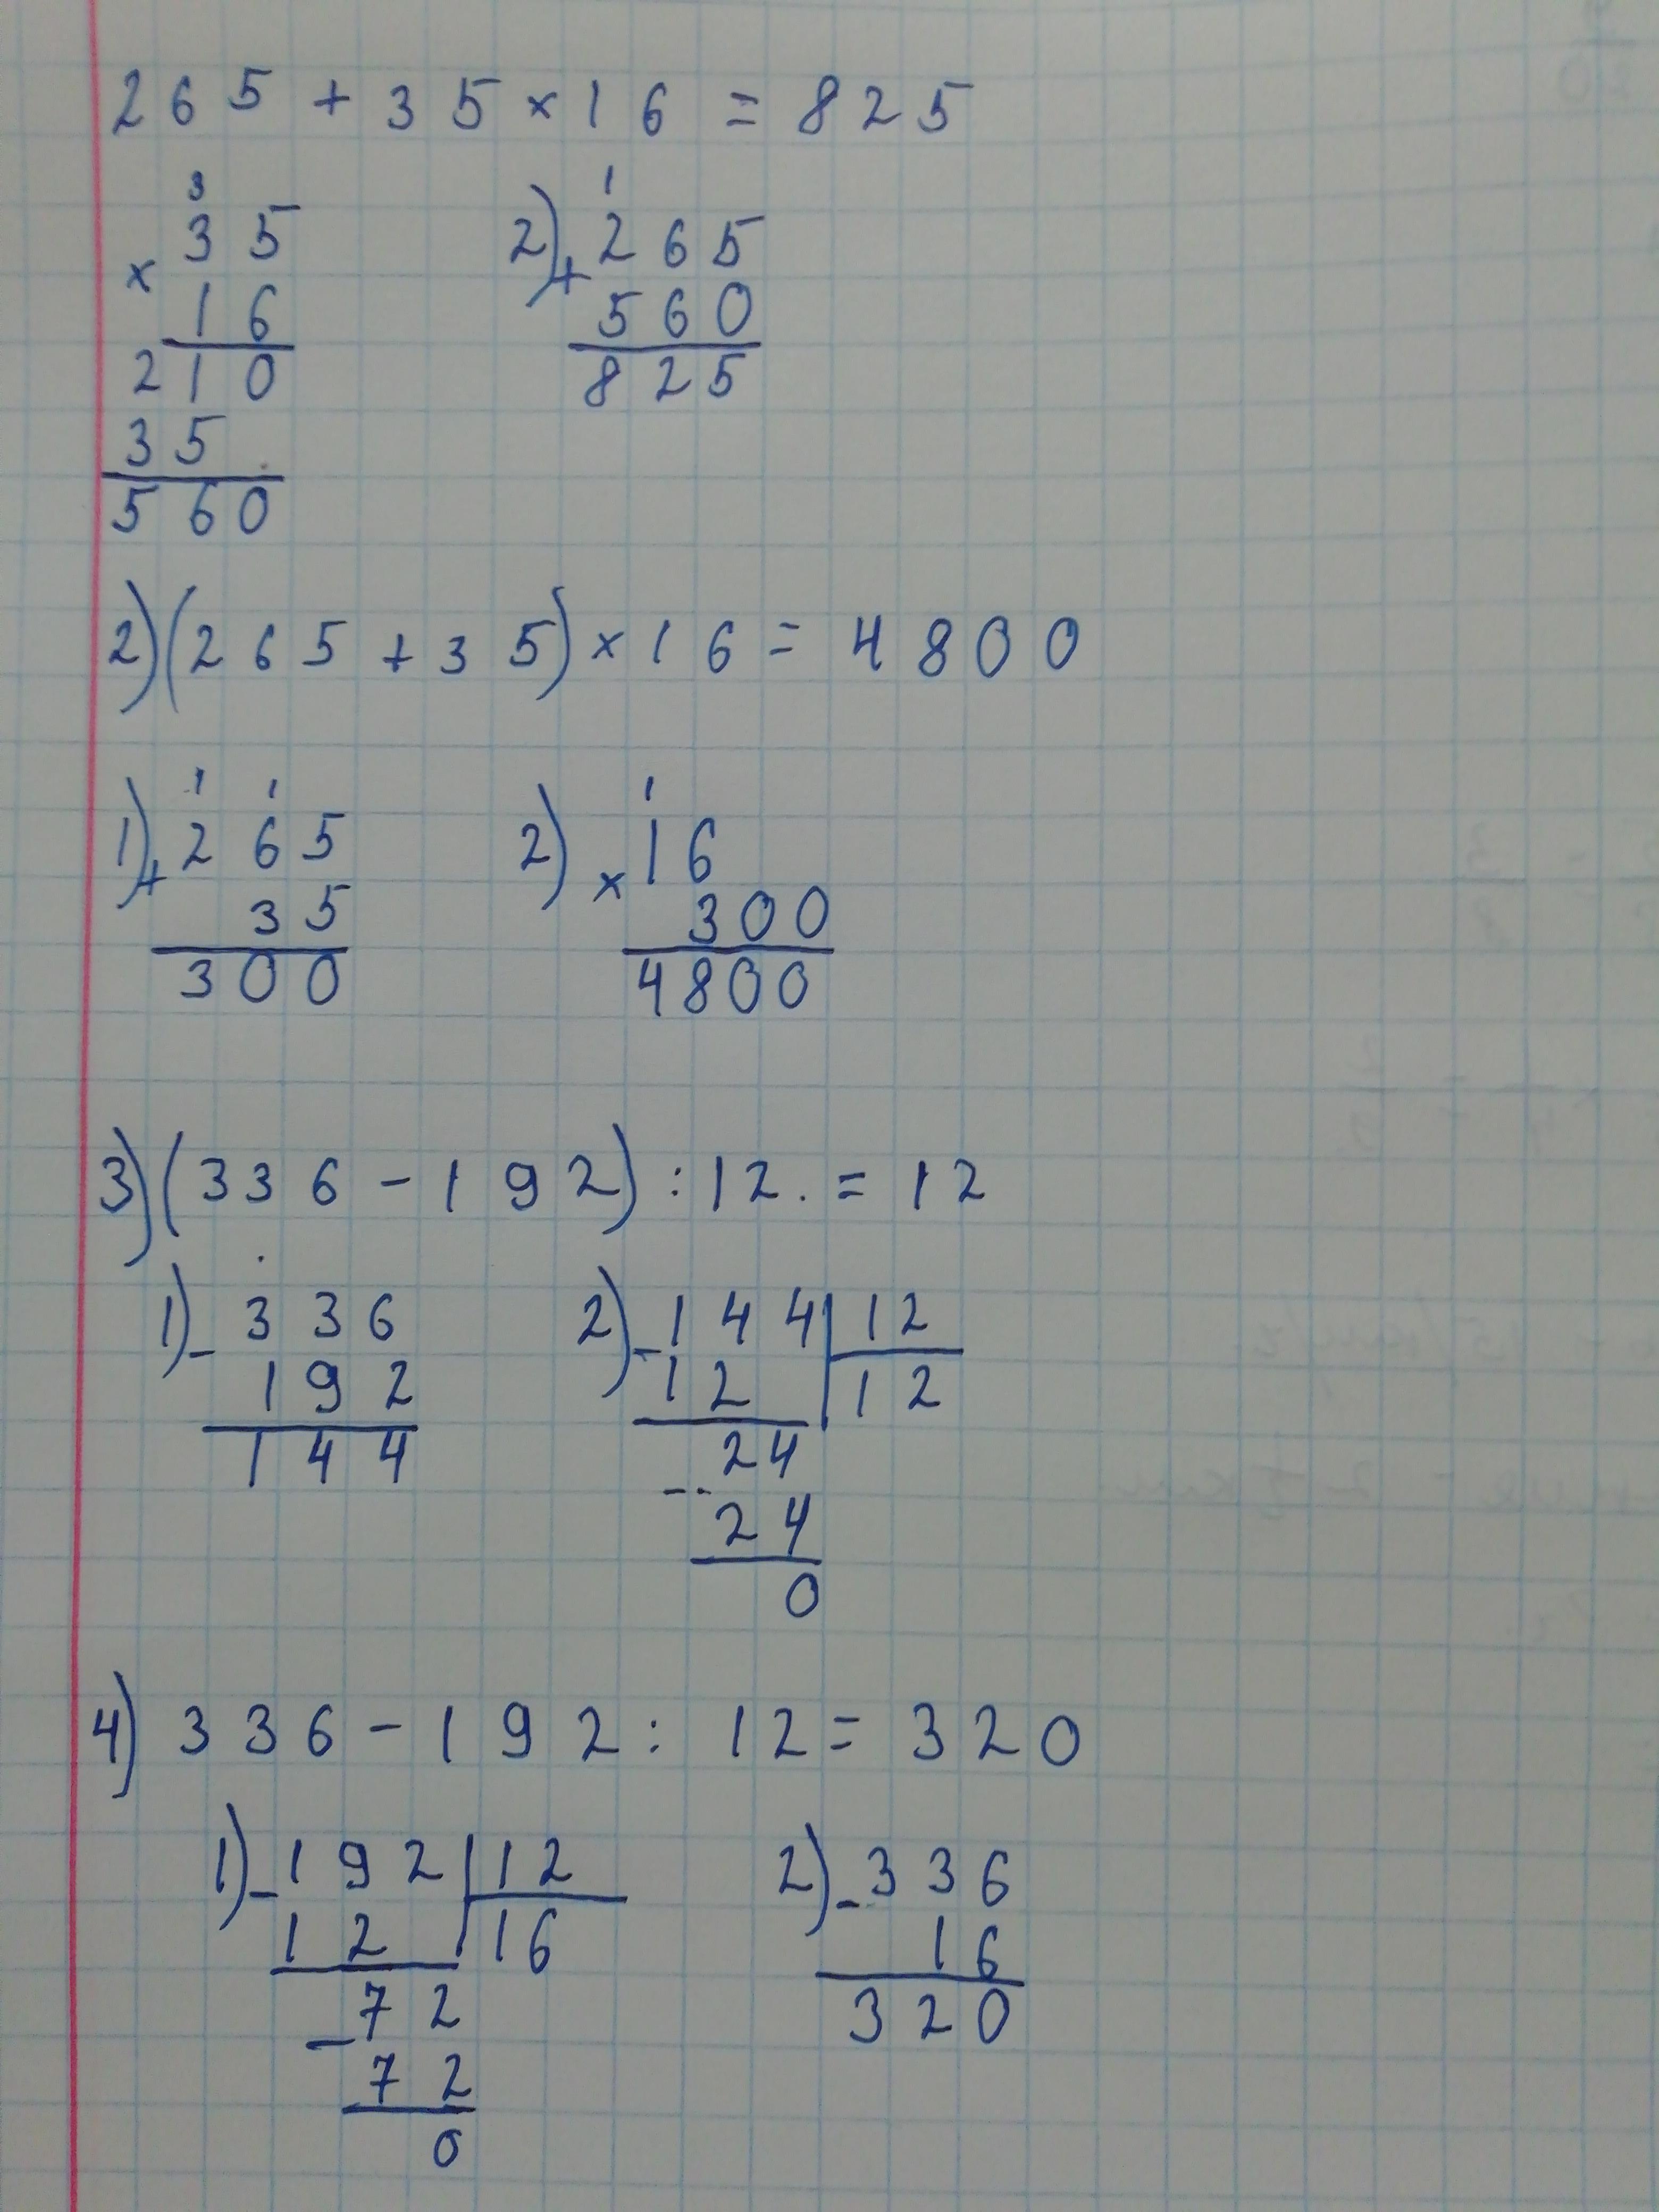 265 + 35 × 16 = 825
3
× 35
16
210
35
560
1
2) + 265
560
825
2) (265 + 35) × 16 = 4800
1 1
1) + 265
35
300
1
2) × 16
300
4800
3) (336 - 192) : 12. = 12
.
1) - 336
192
144
2) - 144 | 12
12 | 12
- 24
24
0
4) 336 - 192 : 12 = 320
1) - 192 | 12
12 | 16
- 72
72
0
2) - 336
16
320